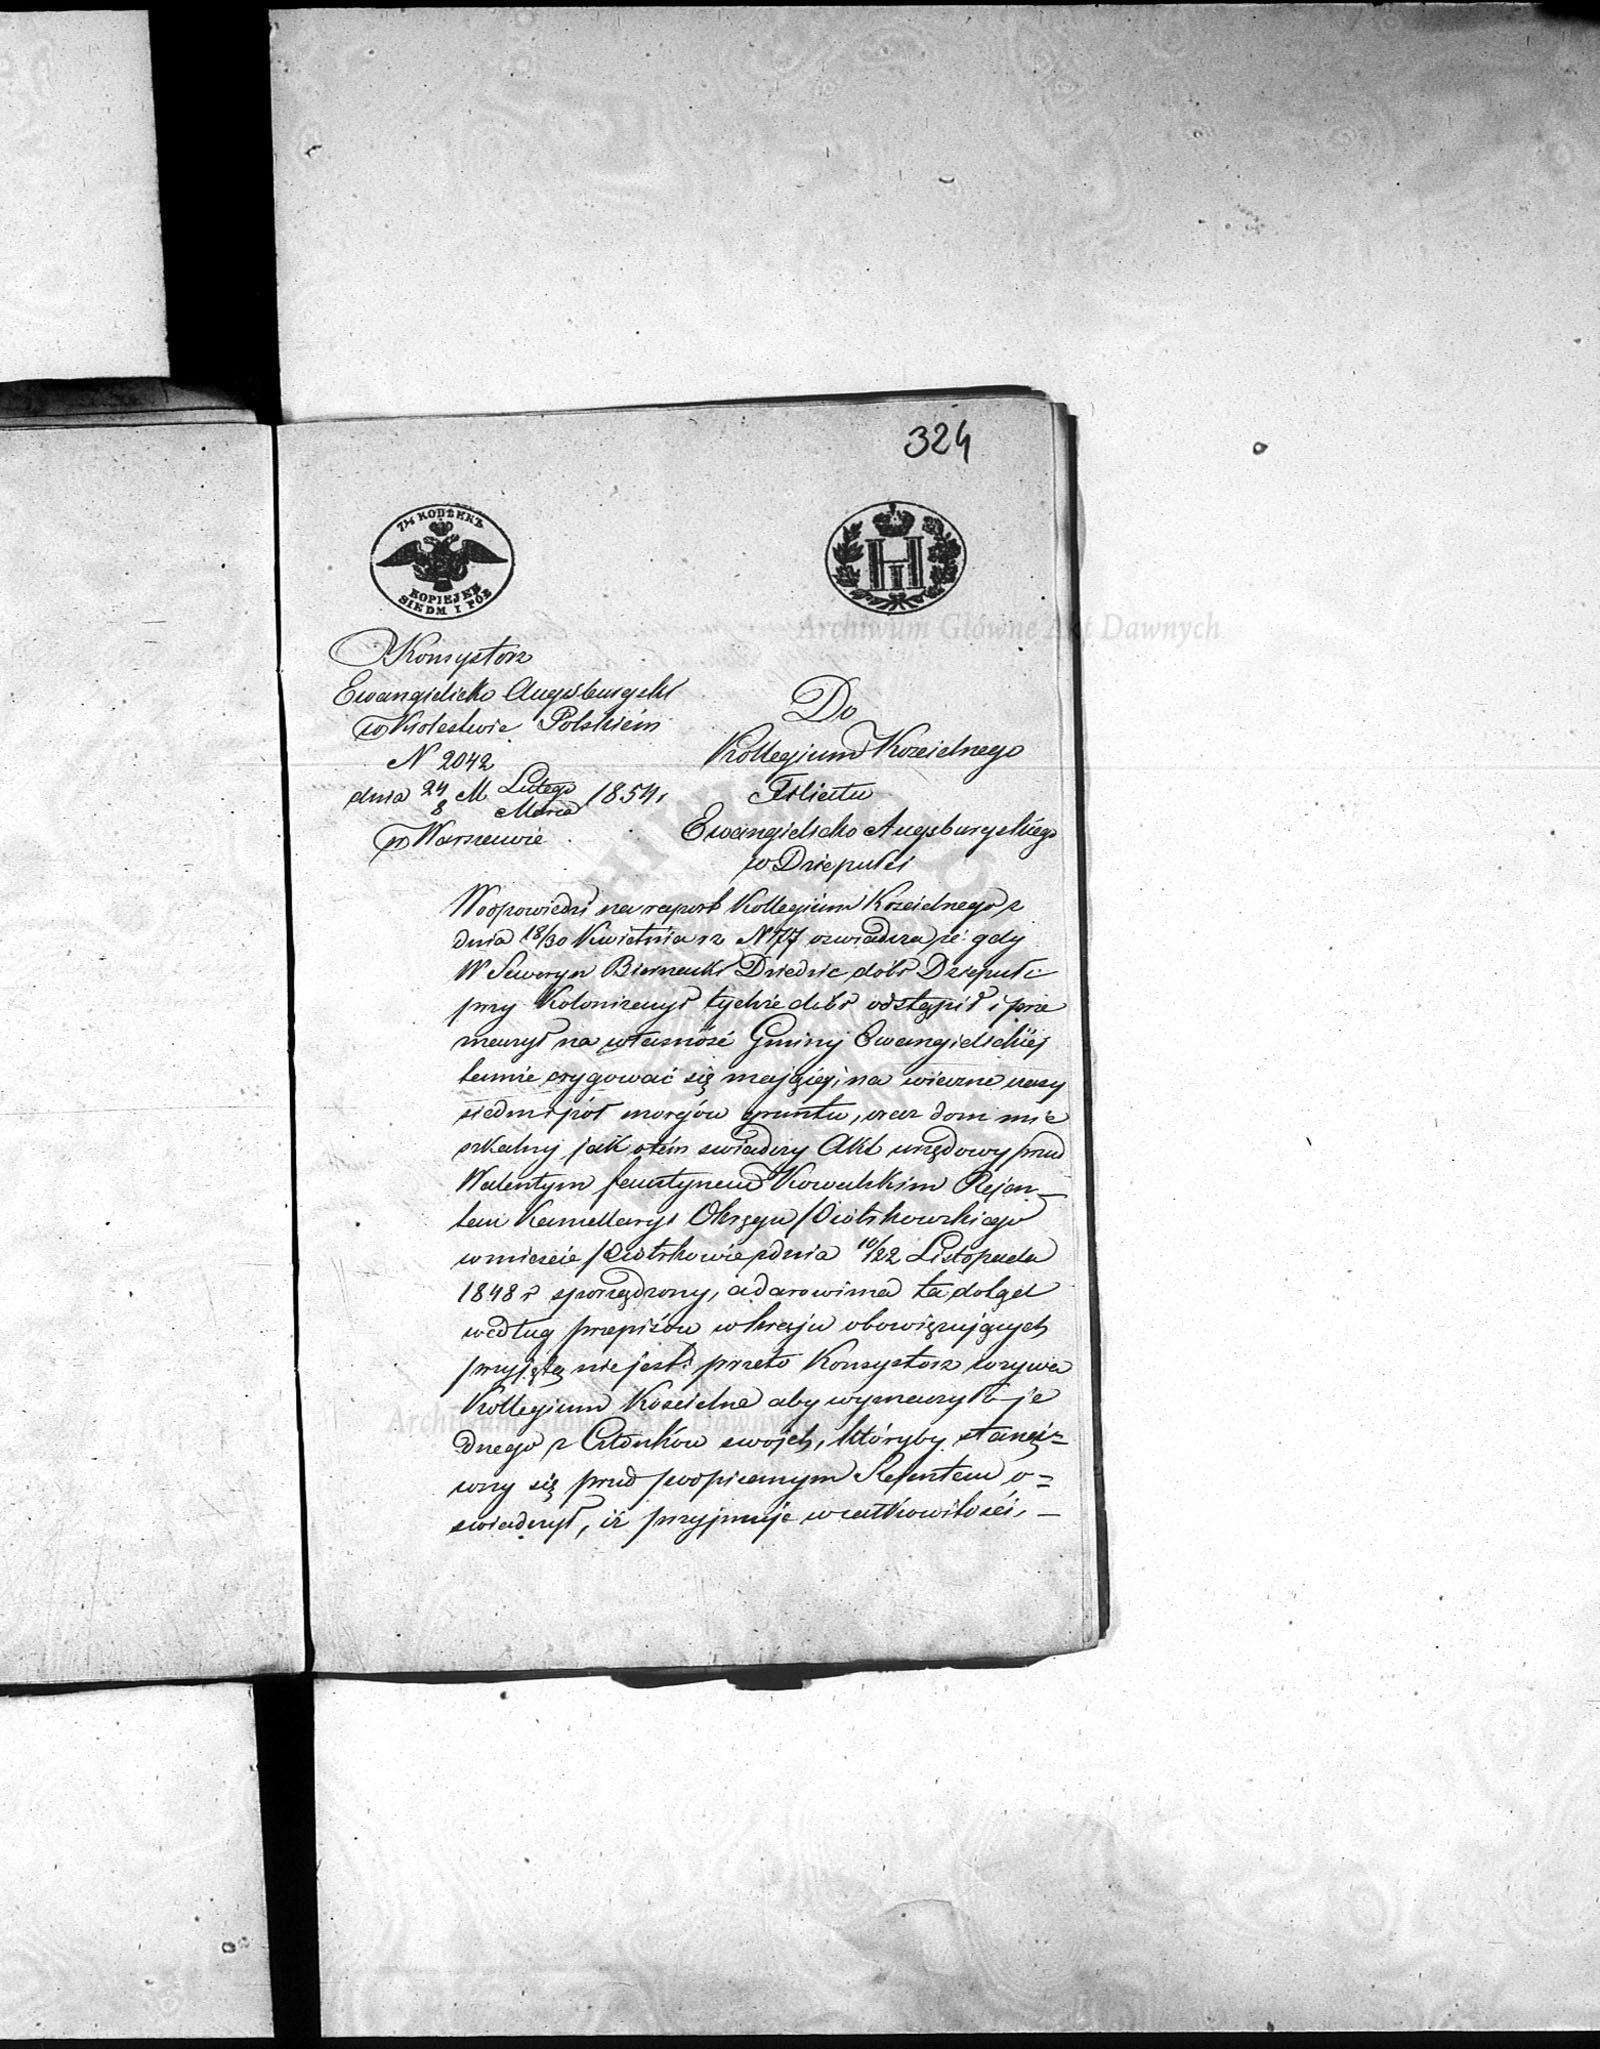 324
7½ КОПѢЕКЪ
KOPIEJEK
SIEDM I PÓŁ
Н I
Archiwum Główne Akt Dawnych
Konsystorz
Ewangielicko Augsburgski
w Królestwie Polskiém
N 2042
dnia 24/8 M Lutego/Marca 1854 r
w Warszawie
Do
Kollegium Kościelnego
Filiału
Ewangielicko Augsburgskiego
w Dziepułci
W odpowiedzi na raport Kollegium Kościelnego z
dnia 18/30 Kwietnia rz N 77 oswiadcza, że gdy
W Seweryn Biernacki Dziedzic dóbr Dziepułc
przy Kolonizacyi tychże dóbr odstąpił i prze
znaczył na własność Gminy Ewangielickiej
tamże erygować się mającej, na wieczne czasy
siedm i pół morgów gruntu, oraz dom mie
szkalny jak o tém swiadczy Akt urzędowy przed
Walentym Faustynem Kowalskim Rejen_
tem Kancellaryi Okręgu Piotrkowskiego
w mieście Piotrkowie z dnia 10/22 Listopada
1848 r sporządzony, a darowizna ta dotąd
według przepisów w kraju obowiązujących
przyjętą nie jest: przeto Konsystorz wzywa
Kollegium Kościelne aby wyznaczyło je
dnego z Członków swoich, któryby staną=
wszy się przed podpisanym Rejentem o=
swiadczył, iż przyjmuje w całkowitości, _
Archiwum Główne Akt Dawnych